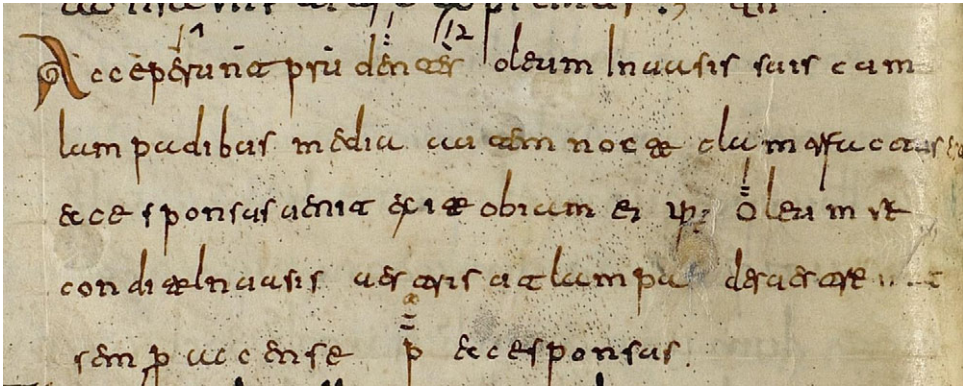 Acceperunt prudentes oleum In uasis suis cum
lampadibus media autem nocte clamor factus
ecce sponsus uenit exite obiam ei Oleum re
condite In uasis uestris ut lampa des uestre
semp accense p ecce sponsus